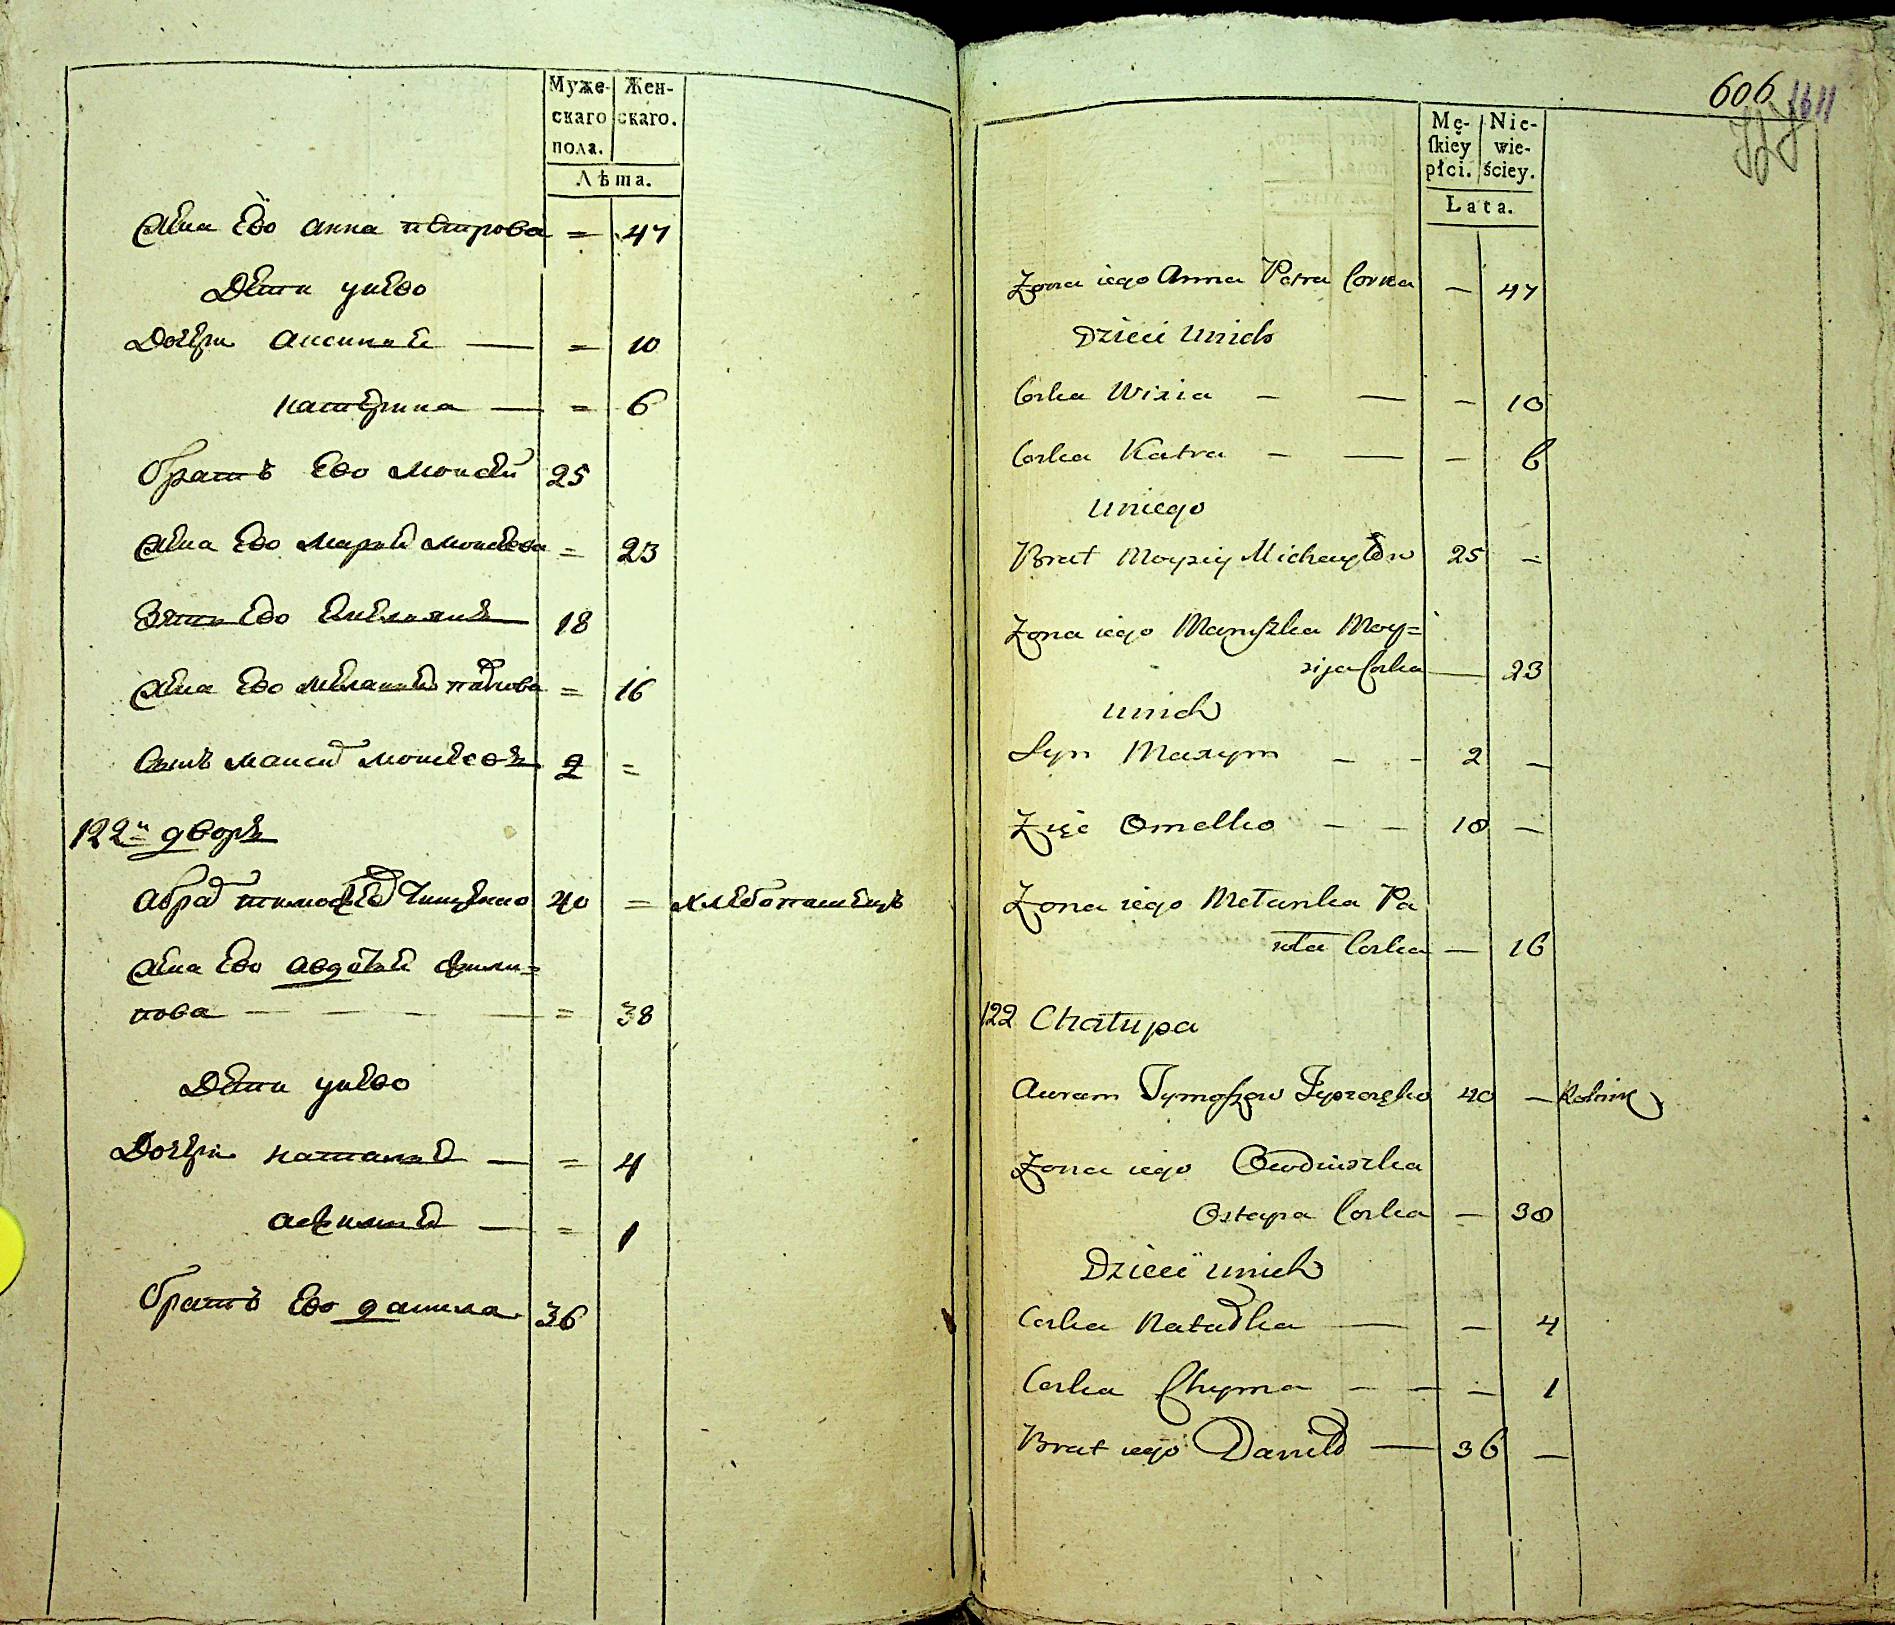 Муже-
скаго
пола.
Жен-
скаго.
Лѣта.
Жена Ево Анна петрова = 47
Дети унево
Дочери Аксиния — = 10
катерина — = 6
братъ Ево Моисей 25
Жена Ево Мария Моисеева = 23
Зять Ево Емельянъ 18
Жена Ево Мелания павлова = 16
Сынъ Максим Моисеевъ 2 =
122й дворъ
Абрам тимофеев 40 = хлебопашецъ
Жена Ево Авдотия Фили=
пова — — — — = 38
Дети унево
Дочери наталия — = 4
афимия — = 1
братъ Ево данила 36
606
Mę-
skiey
płci.
Nie-
wie-
ściey.
Lata.
Zona iego Anna Petra Corka — 47
Dzieci Unich
Corka Wixia — — — 10
Corka Katra — — — 6
Uniego
Brat Moysiy Michayłow 25 —
Zona iego Maryszka Moy=
sija Corka — 23
Unich
Syn Maxym — - 2 —
Zięć Omelko — — 18 —
Zona iego Mełanka Pa
wła Corka — 16
122 Chałupa
Awram Tymoszow 40 — Rolnik
Zona iego Owdiuszka
Ostapa Corka — 38
Dzieci unich
Corka Natałka — — 4
Corka Chyma — — — 1
Brat iego Daniło — 36 —